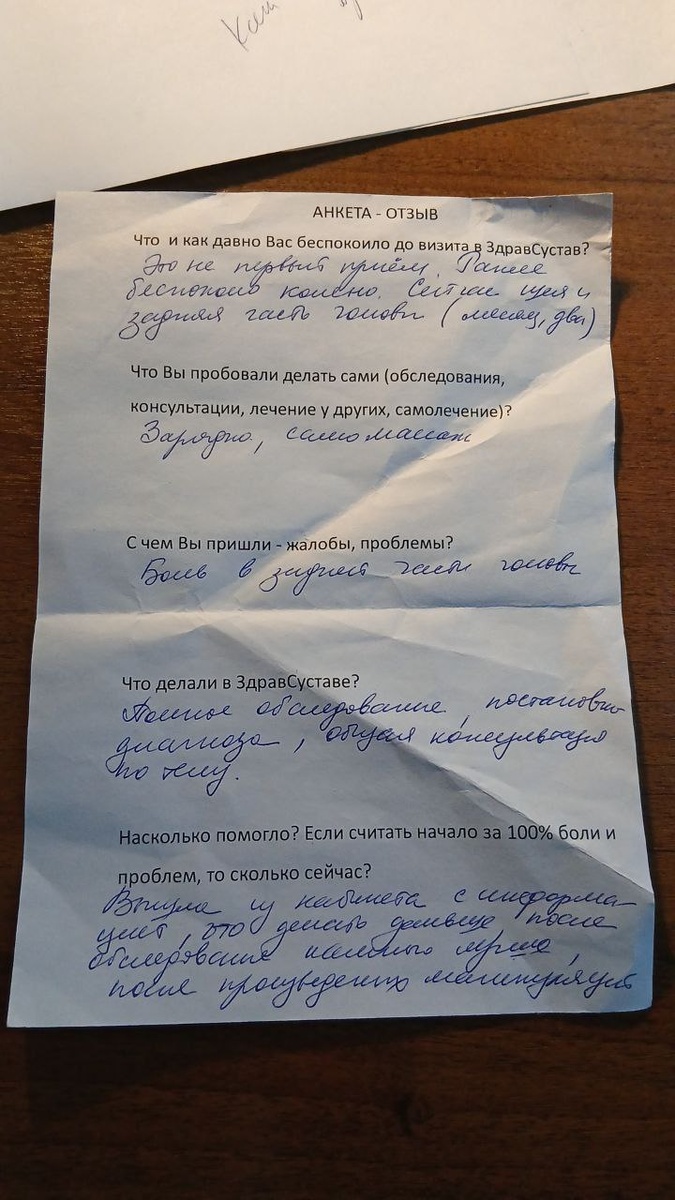 Как
АНКЕТА - ОТЗЫВ
Что и как давно Вас беспокоило до визита в ЗдравСустав?
Это не первый приём. Ранее
беспокоило колено. Сейчас шея и
задняя часть головы (месяц, два)
Что Вы пробовали делать сами (обследования,
консультации, лечение у других, самолечение)?
Зарядка, самомассаж
С чем Вы пришли - жалобы, проблемы?
Боль в задней части головы
Что делали в ЗдравСуставе?
Полное обследование, постановка
диагноза, общая консультация
по телу.
Насколько помогло? Если считать начало за 100% боли и
проблем, то сколько сейчас?
Вышла из кабинета с информа-
цией, что делать дальше после
обследования намного лучше,
после произведенных манипуляций